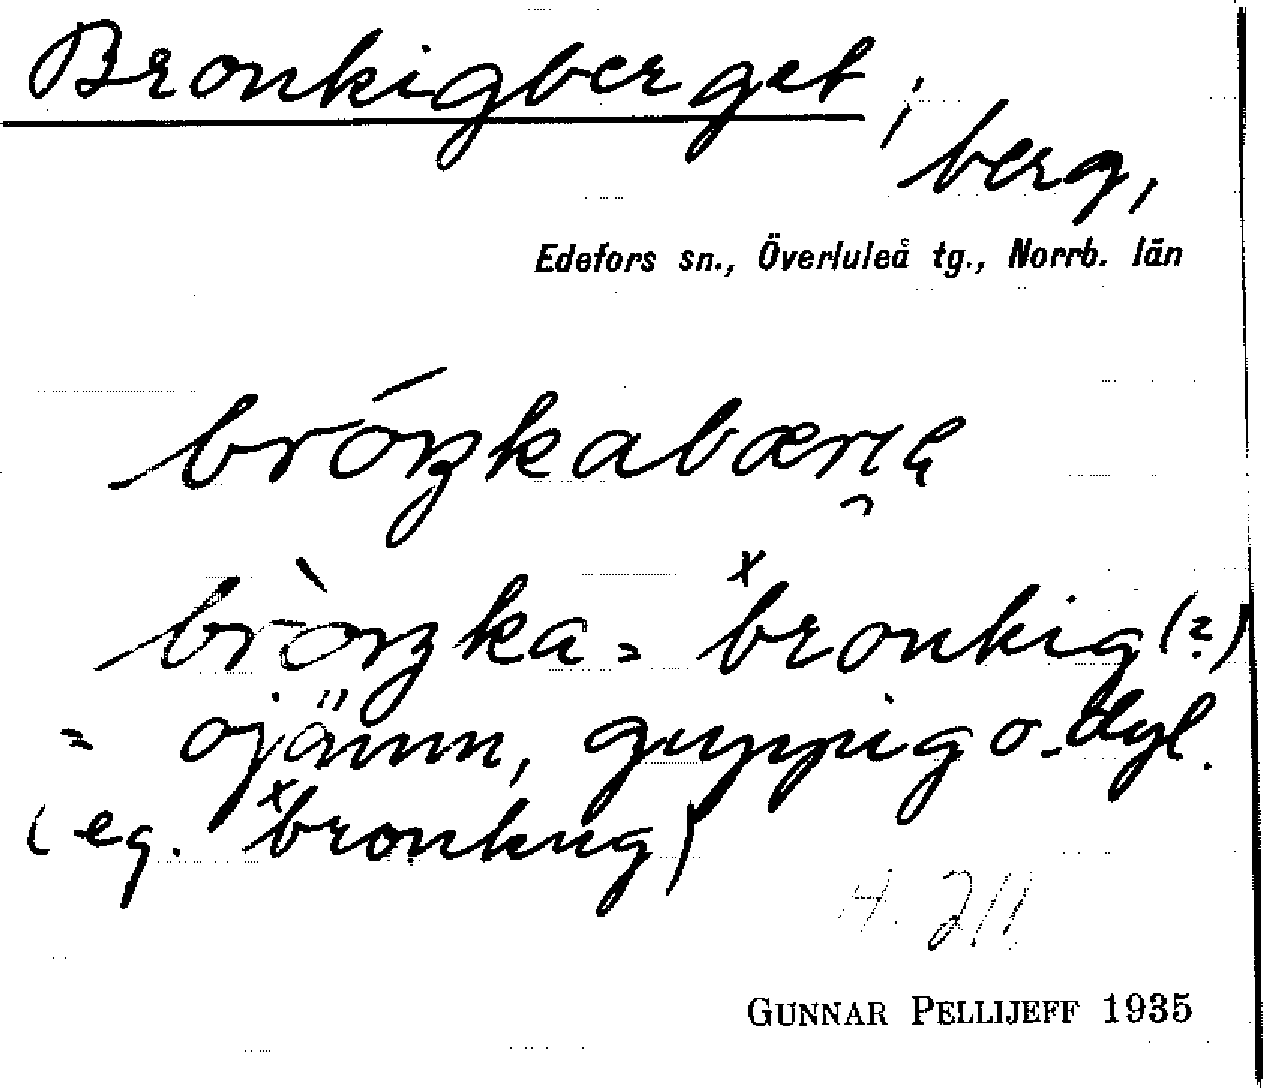 Bronkigberget,
berg,
Edefors sn., Överluleå tg., Norrb. län
bròŋka = ˣbronkig (?)
= ojämn, guppig o. dyl.
(eg. ˣbronkug)
H. 211
GUNNAR PELLIJEFF 1935